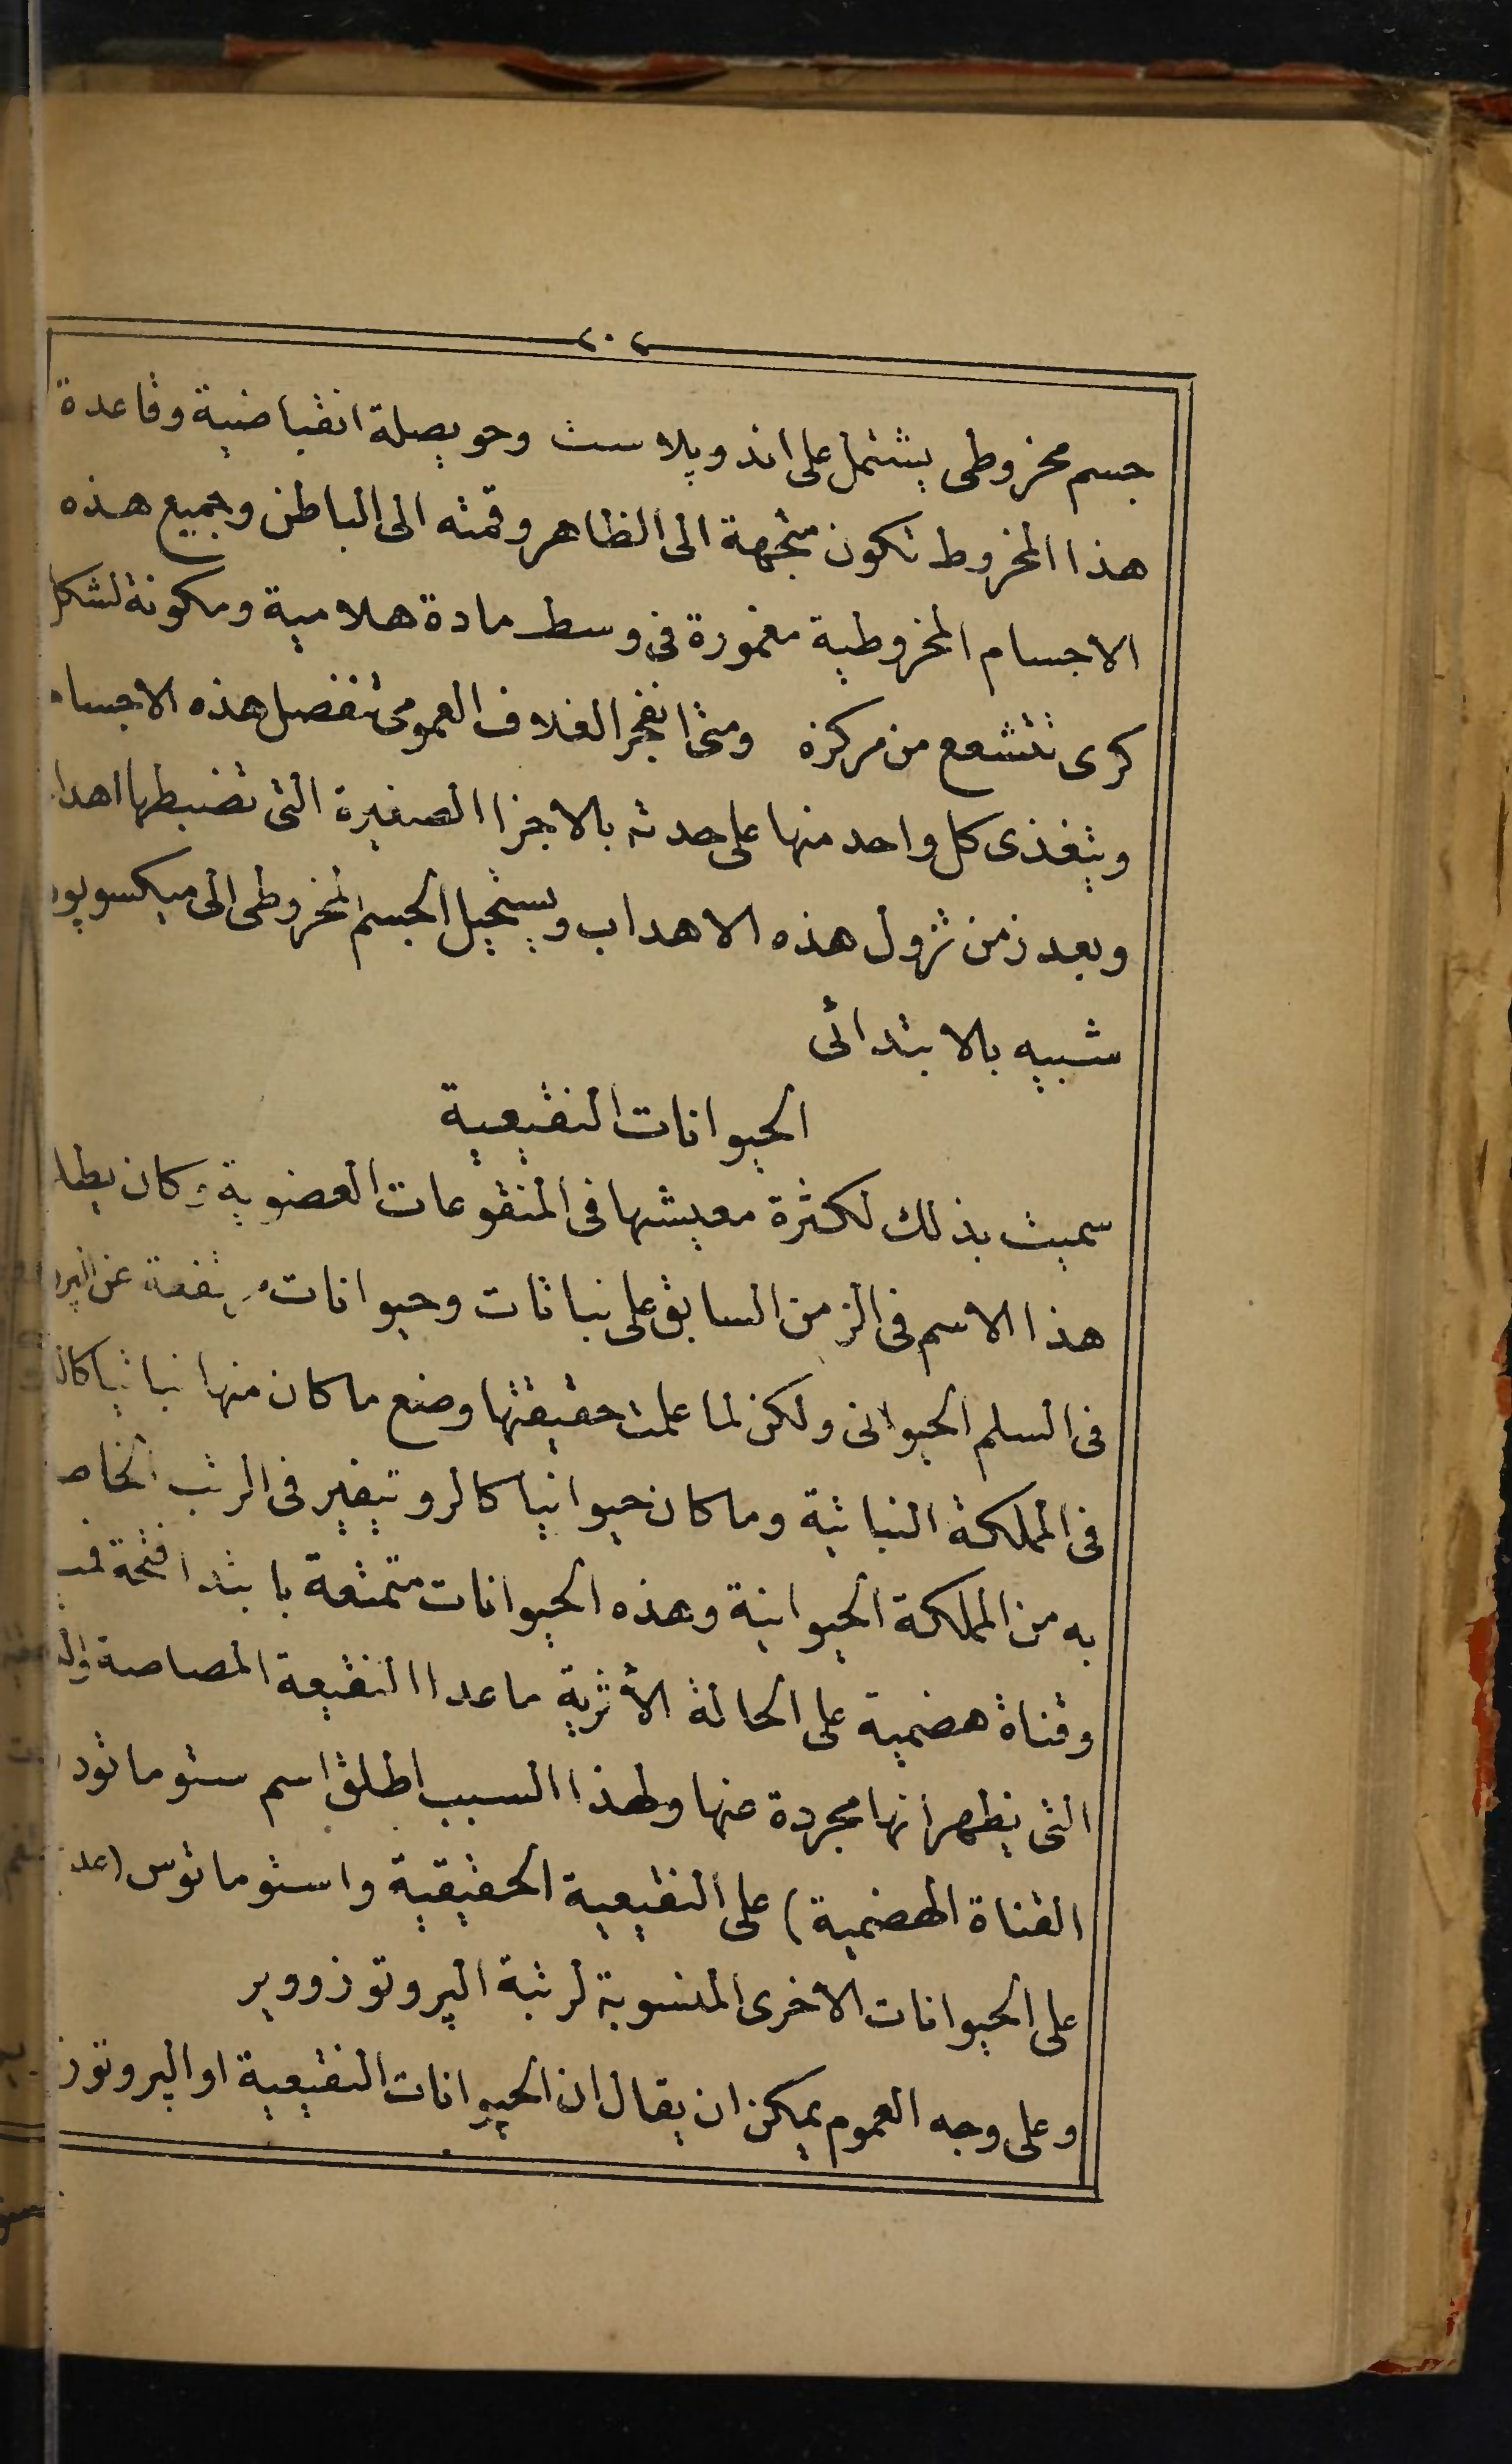 ٢٠٢
جسم مخروطى يشتمل على اندوپلاست وحويصلة انقباضية وقاعدة
هذا المخروط تكون متجهة الى الظاهر وقمته الى الباطن وجميع هذه
الاجسام المخروطية مغمورة فى وسط مادة هلامية ومكونة لشكل
كرى تتشعع من مركزه ومتى انفجر الغلاف العمومى تنفصل هذه الاجسام
ويتغذى كل واحد منها على حدته بالاجزا الصغيرة التى تضبطها
وبعد زمن تزول هذه الاهداب ويستحيل الجسم المخروطى الى
شبيه بالابتدائى
الحيوانات النقيعية
سميت بذلك لكثرة معيشتها فى المنقوعات العضوية وكان
هذا الاسم فى الزمن السابق على نباتات وحيوانات مرتفعة عن
فى السلم الحيوانى ولكن لما علمت حقيقتها وضع ما كان منها نباتيا
فى المملكة النباتية وما كان حيوانيا كالروتيفير فى الرتب
به من المملكة الحيوانية وهذه الحيوانات متمتعة بابتدا فتحة
وقناة هضمية على الحالة الأثرية ماعدا النقيعة المصاصة
التى يظهر انها مجردة عنها ولهذا السبب اطلق اسم ستوماتود
القناة الهضمية) على النقيعية الحقيقية واستوماتوس
على الحيوانات الاخرى المنسوبة لرتبة الپروتوزووير
وعلى وجه العموم يمكن ان يقال ان الحيوانات النقيعية او